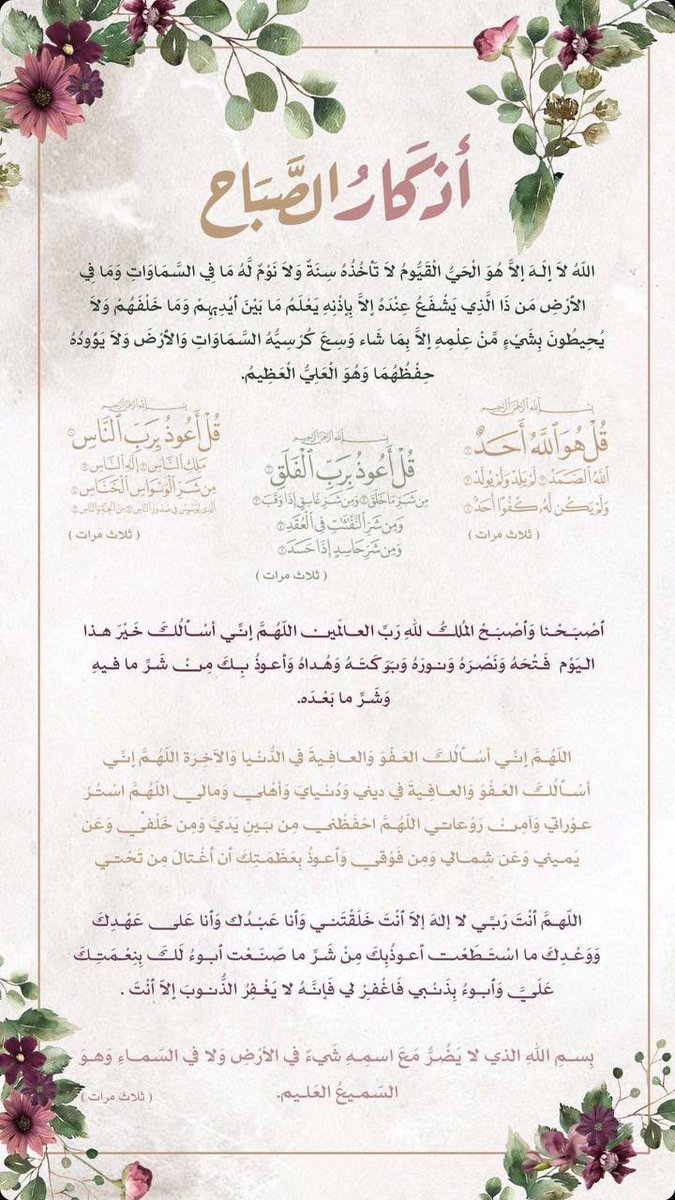 أذكَارُ الصَّبَاح
اللّهُ لاَ إِلَـهَ إِلاَّ هُوَ الْحَيُّ الْقَيُّومُ لاَ تَأْخُذُهُ سِنَةٌ وَلاَ نَوْمٌ لَّهُ مَا فِي السَّمَاوَاتِ وَمَا فِي
الأَرْضِ مَن ذَا الَّذِي يَشْفَعُ عِنْدَهُ إِلاَّ بِإِذْنِهِ يَعْلَمُ مَا بَيْنَ أَيْدِيهِمْ وَمَا خَلْفَهُمْ وَلاَ
يُحِيطُونَ بِشَيْءٍ مِّنْ عِلْمِهِ إِلاَّ بِمَا شَاء وَسِعَ كُرْسِيُّهُ السَّمَاوَاتِ وَالأَرْضَ وَلاَ يَؤُودُهُ
حِفْظُهُمَا وَهُوَ الْعَلِيُّ الْعَظِيمُ.
بسم الله الرحمن الرحيم
قُلْ هُوَ ٱللَّهُ أَحَدٌ ۝١
ٱللَّهُ ٱلصَّمَدُ ۝٢ لَمْ يَلِدْ وَلَمْ يُولَدْ ۝٣
وَلَمْ يَكُن لَّهُۥ كُفُوًا أَحَدٌ ۝٤
( ثلاث مرات )
بسم الله الرحمن الرحيم
قُلْ أَعُوذُ بِرَبِّ ٱلْفَلَقِ ۝١
مِن شَرِّ مَا خَلَقَ ۝٢ وَمِن شَرِّ غَاسِقٍ إِذَا وَقَبَ ۝٣
وَمِن شَرِّ ٱلنَّفَّٰثَٰتِ فِي ٱلْعُقَدِ ۝٤
وَمِن شَرِّ حَاسِدٍ إِذَا حَسَدَ ۝٥
( ثلاث مرات )
بسم الله الرحمن الرحيم
قُلْ أَعُوذُ بِرَبِّ ٱلنَّاسِ ۝١
مَلِكِ ٱلنَّاسِ ۝٢ إِلَٰهِ ٱلنَّاسِ ۝٣
مِن شَرِّ ٱلْوَسْوَاسِ ٱلْخَنَّاسِ ۝٤
ٱلَّذِي يُوَسْوِسُ فِي صُدُورِ ٱلنَّاسِ ۝٥ مِنَ ٱلْجِنَّةِ وَٱلنَّاسِ ۝٦
( ثلاث مرات )
أَصْبَـحْـنا وَأَصْبَـحَ المُـلكُ للهِ رَبِّ العـالَمـين اللّهُـمَّ إِنِّـي أسْـأَلُـكَ خَـيْرَ هـذا
الـيَوْم فَـتْحَهُ وَنَصْرَهُ وَنـورَهُ وَبَـرَكَتَـهُ وَهُـداهُ وَأَعـوذُ بِـكَ مِـنْ شَـرِّ ما فـيهِ
وَشَـرِّ ما بَعْـدَه.
اللّهُـمَّ إِنِّـي أسْـأَلُـكَ العَـفْوَ وَالعـافِـيةَ في الدُّنْـيا وَالآخِـرَة اللّهُـمَّ إِنِّـي
أسْـأَلُـكَ العَـفْوَ وَالعـافِـيةَ في ديني وَدُنْـيايَ وَأهْـلي وَمالـي اللّهُـمَّ اسْتُـرْ
عـوْراتي وَآمِـنْ رَوْعاتـي اللّهُـمَّ احْفَظْـني مِن بَـينِ يَدَيَّ وَمِن خَلْفـي وَعَن
يَمـيني وَعَن شِمـالي وَمِن فَوْقـي وَأَعـوذُ بِعَظَمَـتِكَ أَن أُغْـتالَ مِن تَحْتـي
اللّهـمَّ أَنْتَ رَبِّـي لا إلهَ إلاّ أَنْتَ خَلَقْتَنـي وَأَنا عَبْـدُك وَأَنا عَلـى عَهْـدِكَ
وَوَعْـدِكَ ما اسْتَـطَعْـت أَعـوذُبِكَ مِنْ شَـرِّ ما صَنَـعْت أَبـوءُ لَـكَ بِنِعْـمَتِـكَ
عَلَـيَّ وَأَبـوءُ بِذَنْـبي فَاغْفِـرْ لي فَإِنَّـهُ لا يَغْـفِرُ الذُّنـوبَ إِلاّ أَنْتَ .
بِسـمِ اللهِ الذي لا يَضُـرُّ مَعَ اسمِـهِ شَيءٌ في الأرْضِ وَلا في السّمـاءِ وَهـوَ
السّمـيعُ العَلـيم. ( ثلاث مرات )